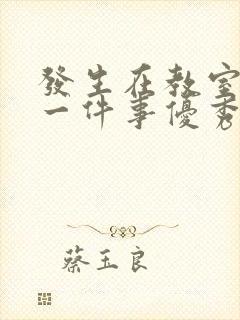 發生在教室
一件事優秀
蔡玉良